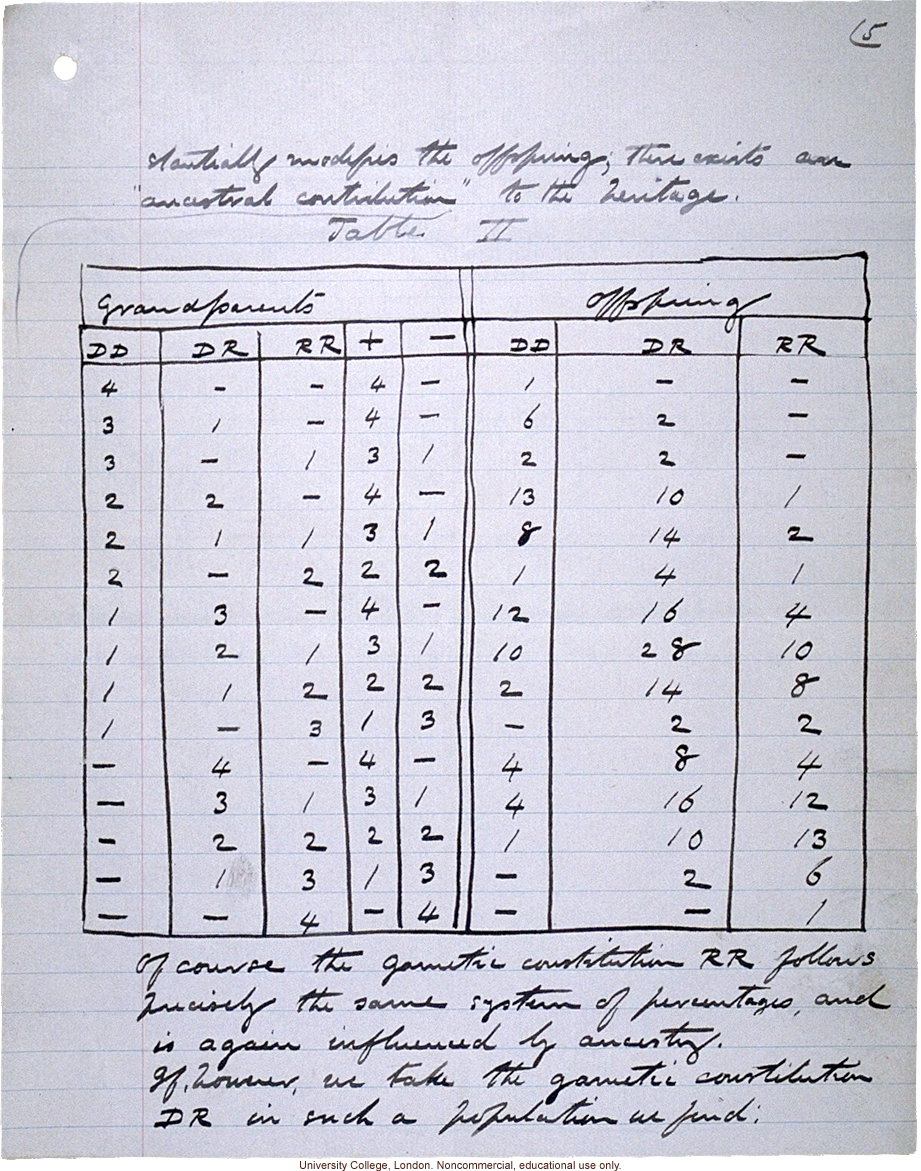 (5
stantially modifies the offspring; there exists an
"ancestral contribution" to the heritage.
Table II
Grandparents Offspring
DD DR RR + — DD DR RR
4 - - 4 — 1 — —
3 1 — 4 — 6 2 —
3 — 1 3 1 2 2 —
2 2 — 4 — 13 10 1
2 1 1 3 1 8 14 2
2 — 2 2 2 1 4 1
1 3 — 4 — 12 16 4
1 2 1 3 1 10 28 10
1 1 2 2 2 2 14 8
1 — 3 1 3 — 2 2
— 4 — 4 — 4 8 4
— 3 1 3 1 4 16 12
- 2 2 2 2 1 10 13
— 1 3 1 3 — 2 6
— — 4 - 4 — — 1
Of course the gametic constitution RR follows
precisely the same system of percentages, and
is again influenced by ancestry.
If, however, we take the gametic constitution
DR in such a population we find:
University College, London. Noncommercial, educational use only.